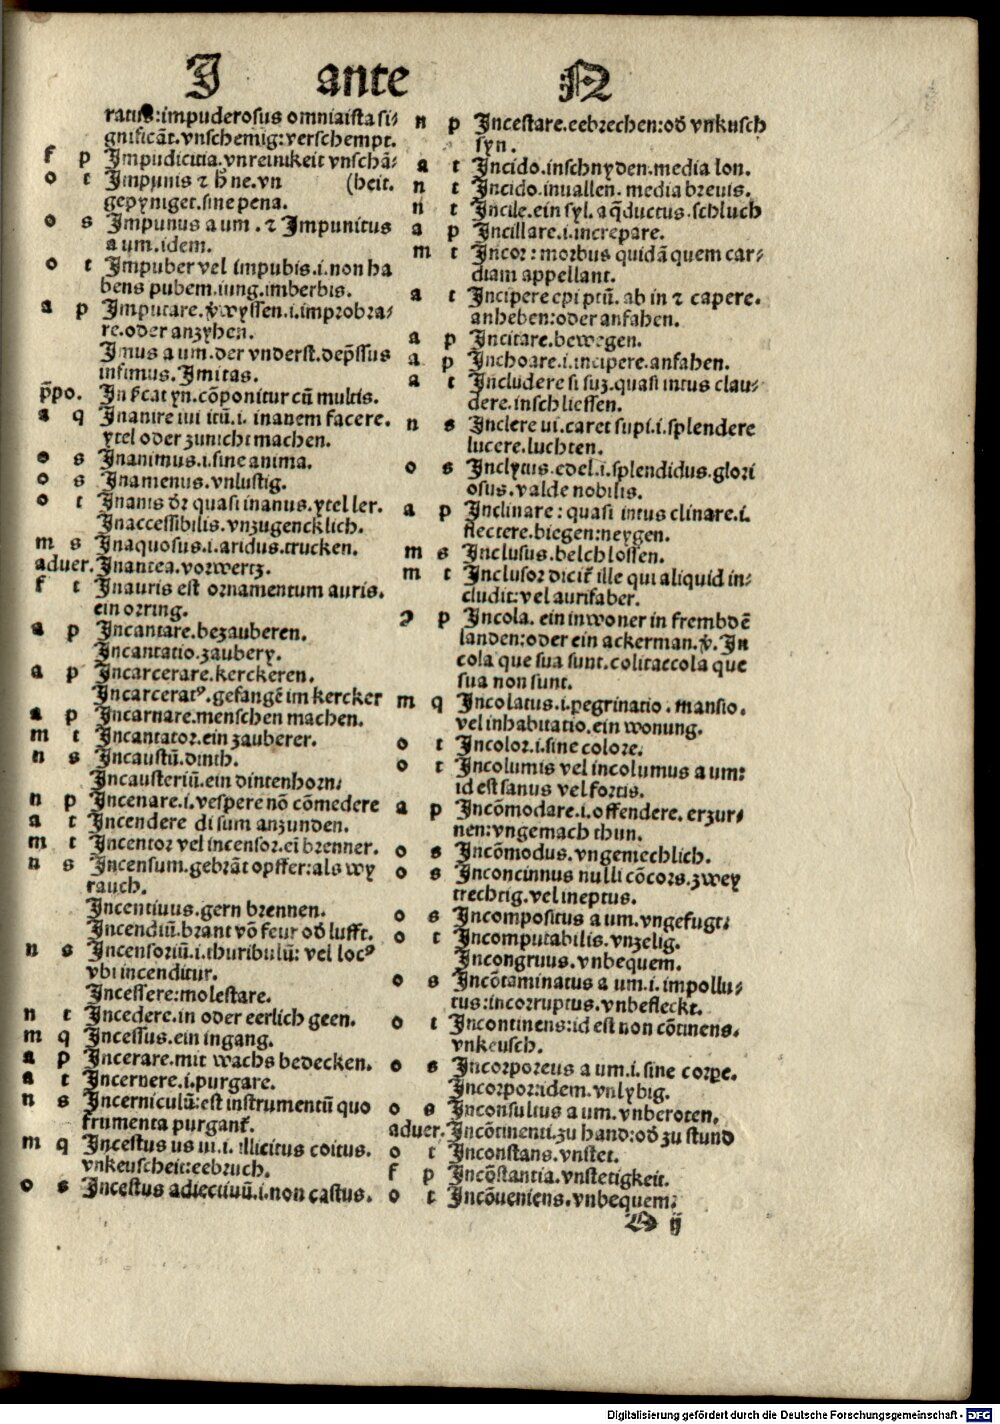 J ante N
ratus:impuderosus omnia ista si⸗
gnificāt.vnschemig:verschempt.
f p Impudicitia.vnreinikeit vnschā⸗
o t Impunis ⁊ hͦ ne.vn (heit.
gepyniget.sine pena.
o s Impunus a um.⁊ Impunitus
a um.idem.
o t Impuber vel impubis.i.non ha
bens pubem.iung.imberbis.
a p Imputare.v̾wyssen.i.improbra⸗
re.oder anzyhen.
Imus a um.der vnderst.dep̄ssus
infimus.Imitas.
p̄po. In yn.cōponitur cū multis.
a q Inanire iui itū.i. inanem facere.
ytel oder zunicht machen.
o s Inanimus.i.sine anima.
o s Inamenus.vnlustig.
o t Inanis quasi inanus.ytel ler.
Inaccessibilis.vnzugencklich.
m s Inaquosus.i.aridus.trucken.
aduer.Inantea.vorwertz.
f t Inauris est ornamentum auris.
ein orring.
a p Incantare.bezauberen.
Incantatio.zaubery.
a p Incarcerare.kerckeren.
Incarceratꝰ.gefangē im kercker
a p Incarnare.menschen machen.
m t Incantator.ein zauberer.
n s Incaustū.dinth.
Incausteriū.ein dintenhorn.
n p Incenare.i.vespere nō cōmedere
a t Incendere di sum anzunden.
m t Incentor vel incensor.eī brenner.
n s Incensum.gebrāt opffer:als wy
rauch.
Incentiuus.gern brennen.
Incendiū.brant vō feur od̾ lufft.
n s Incensoriū.i.thuribulū: vel locꝰ
vbi incenditur.
Incessere:molestare.
n t Incedere.in oder eerlich geen.
m q Incessus.ein ingang.
a p Incerare.mit wachs bedecken.
a t Incernere.i.purgare.
n s Incerniculū:est instrumentū quo
frumenta purganť.
m q Incestus us ui.i. illicitus coitus.
vnkeuscheit:eebruch.
o s Incestus adiectiuū.i.non castus.
n p Incestare.eebrechen:od̾ vnkusch
syn.
a t Incido.inschnyden.media lon.
n t Incido.inuallen. media breuis.
n t Incile.ein syl.aq̄ductus.schluch
a p Incillare.i.increpare.
m t Incor: morbus quidā quem car⸗
diam appellant.
a t Incipere cepi ptū. ab in ⁊ capere.
anheben:oder anfahen.
a p Incitare.bewegen.
a p Inchoare.i.incipere.anfahen.
a t Includere si suz.quasi intus clau⸗
dere.inschliessen.
n s Inclere ui.caret supi.i.splendere
lucere.luchten.
o s Inclytus.edel.i.splendidus.glori
osus.valde nobilis.
a p Inclinare: quasi intus clinare.i.
flectere.biegen:neygen.
m s Inclusus.beschlossen.
m t Inclusor diciť ille qui aliquid in⸗
cludit:vel aurifaber.
p Incola. ein inwoner in frembdē
landen:oder ein ackerman.v̾. In
cola que sua sunt.colit accola que
sua non sunt.
m q Incolatus.i.peregrinatio. mansio.
vel inhabitatio.ein wonung.
o t Incolor.i.sine colore.
o t Incolumis vel incolumus a um:
id est sanus vel fortis.
a p Incōmodare.i.offendere. erzur⸗
nen:vngemach thun.
o s Incōmodus.vngemechlich.
o s Inconcinnus nulli cōcors.zwey
trechtig.vel ineptus.
o s Incompositus a um.vngefugt.
o t Incomputabilis.vnzelig.
Incongruus.vnbequem.
o s Incōtaminatus a um.i.impollu⸗
tus:incorruptus.vnbefleckt.
o t Incontinens:id est non cōtinens.
vnkeusch.
o s Incorporeus a um.i.sine corpe.
Incorpor idem.vnlybig.
o s Inconsultus a um.vnberoten.
aduer.Incōtinenti.zu hand:od̾ zu stund
o t Inconstans.vnstet.
f p Incōstantia.vnstetigkeit.
o t Incōueniens.vnbequem.
ij
Digitalisierung gefördert durch die Deutsche Forschungsgemeinschaft - DFG